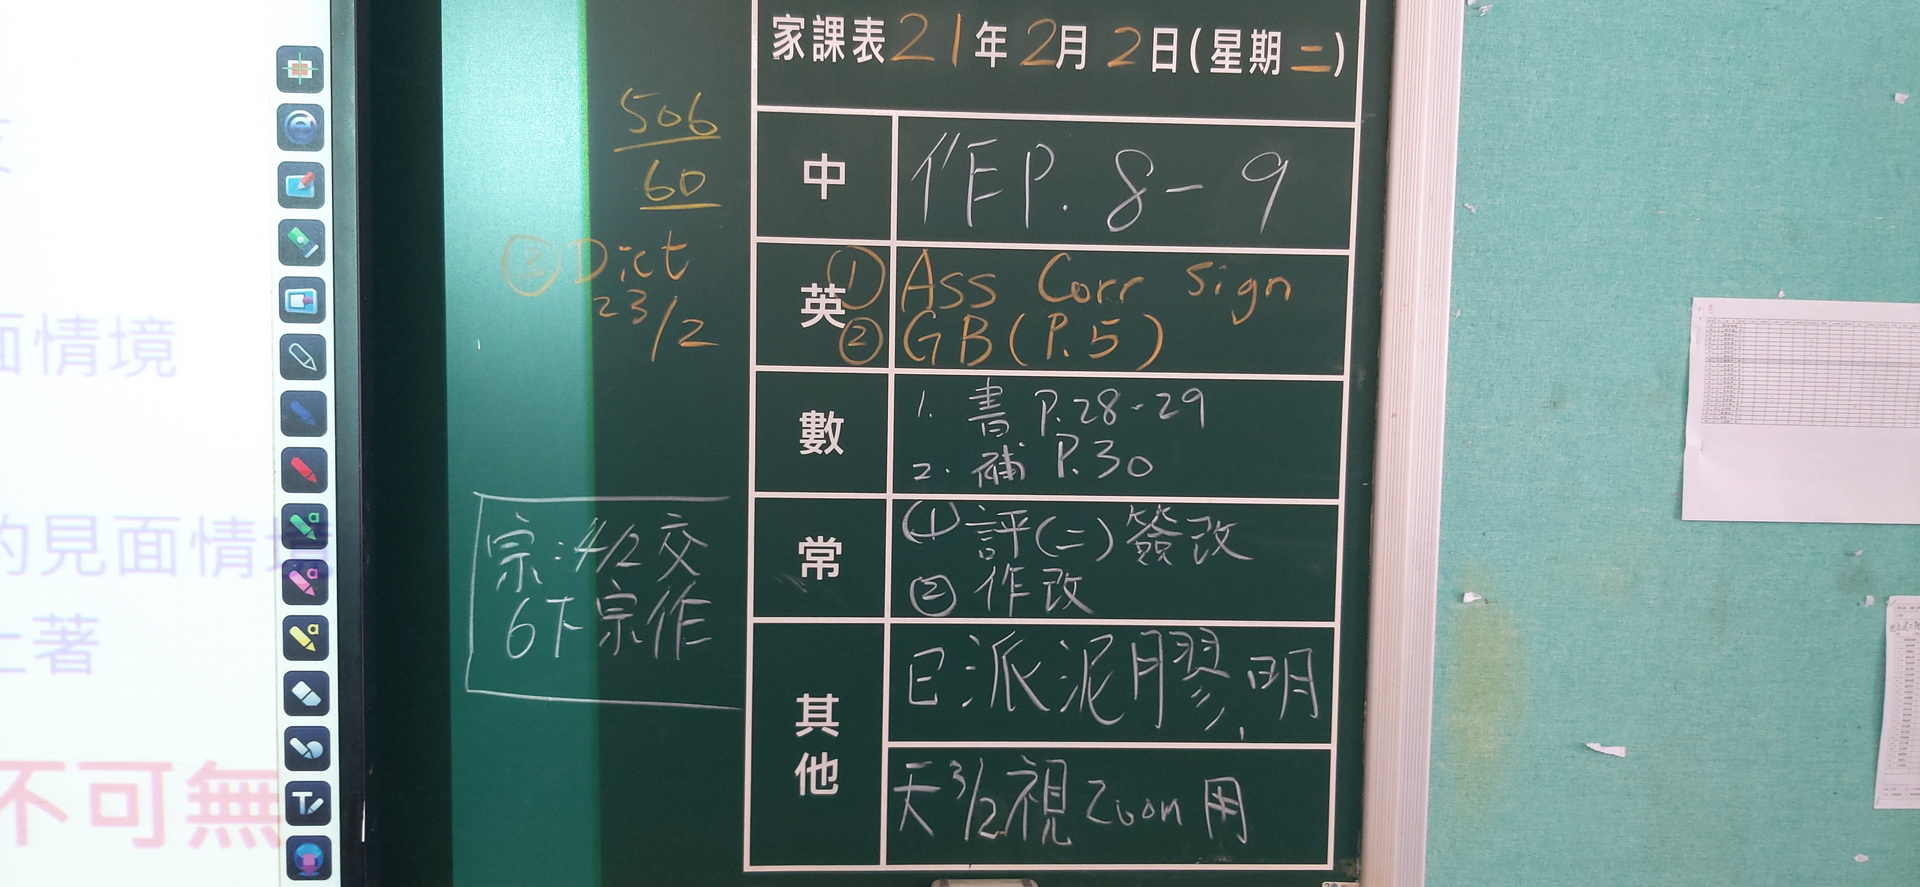 家課表21年2月2日(星期二)
506
60
中
作P. 8-9
英
① Ass Corr sign
② GB (P.5)
③ Dict
23/2
數
1. 書 P.28-29
2. 補 P.30
常
(1) 評(二)簽改
② 作改
宗:4/2交
6下宗作
其他
已派泥膠,明
天3/2視Zoom用
面情境
的見面情境
上著
不可無